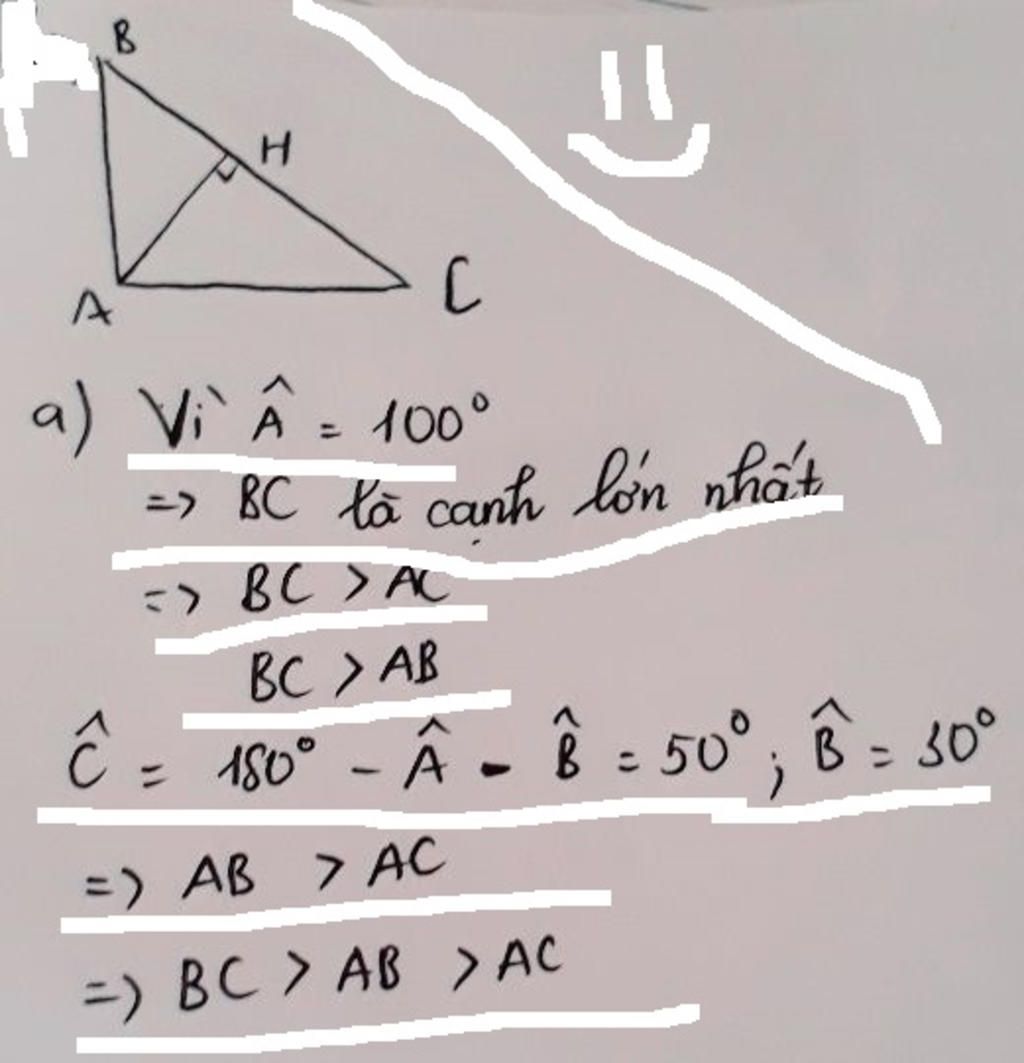 B
H
A
C
a) Vì Â = 100°
=> BC là cạnh lớn nhất
=> BC > AC
BC > AB
Ĉ = 180° - Â - B̂ = 50° ; B̂ = 30°
=> AB > AC
=> BC > AB > AC